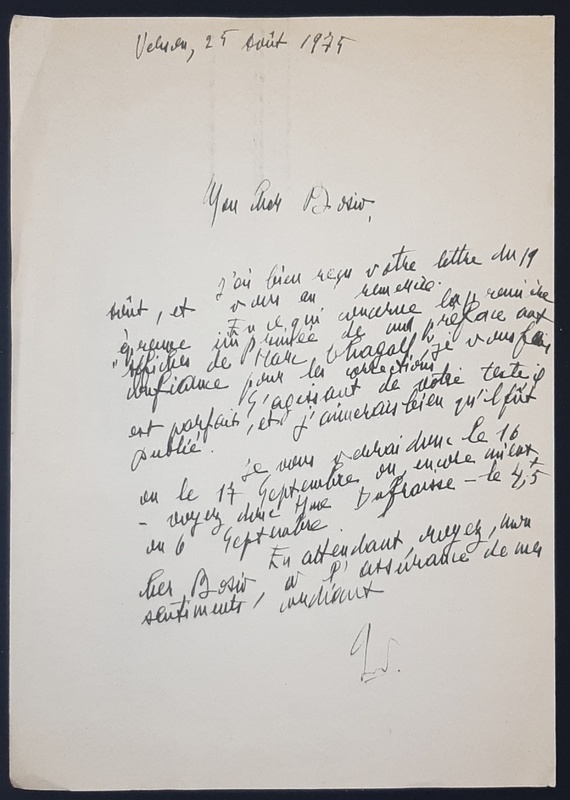 25 août 1975
Mon cher Bosio,
J'ai bien reçu votre lettre du 19
août, et vous en remercie.
En ce qui concerne la première
épreuve imprimée de ma préface aux
"Affiches de Marc Chagall", je vous fais
confiance pour les corrections.
S'agissant de votre texte il
est parfait, et j'aimerais bien qu'il fût
publié.
Je vous verrai donc le 16
ou le 17 Septembre ou, encore mieux,
- voyez donc Mme Dufraisse - le 4, 5
ou 6 Septembre
En attendant, croyez, mon
cher Bosio, à l'assurance de mes
sentiments cordiaux